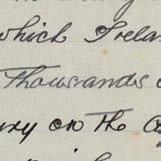 which Irelan
Thousands
ury on the